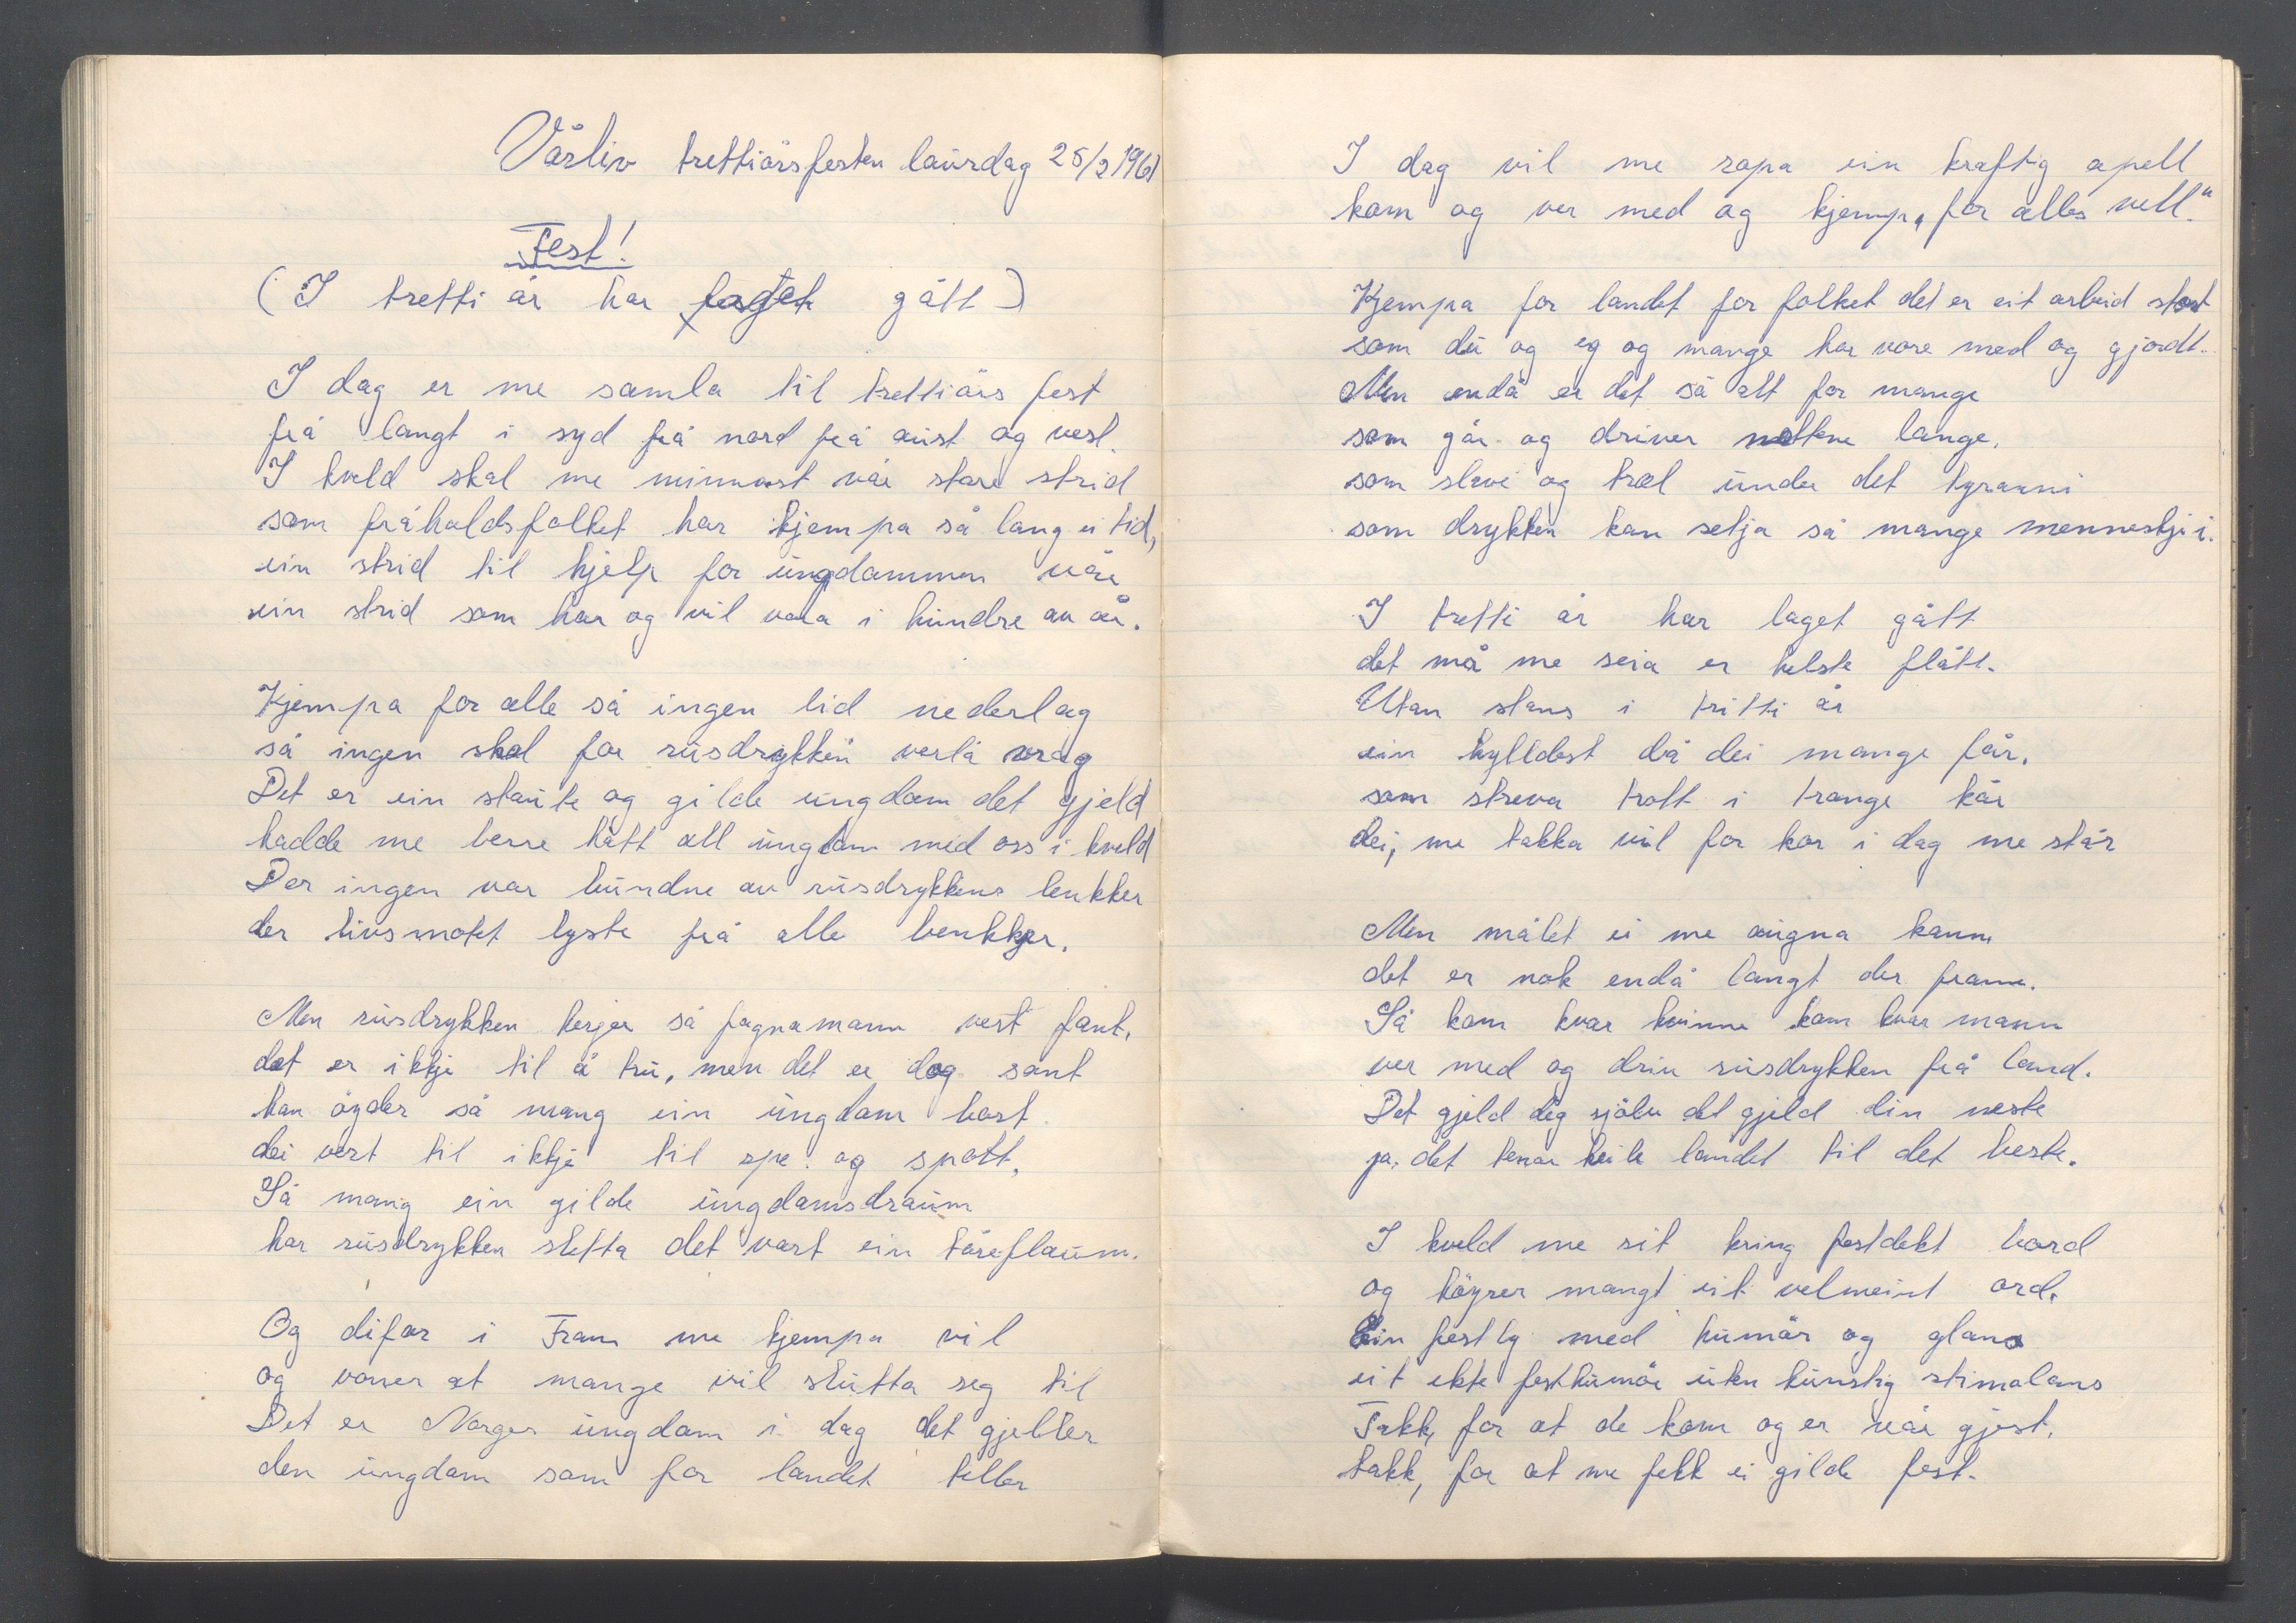 Vårliv trettiårsfesten laurdag 25/2 1961
Fest!
(I tretti år har laget gått)
I dag er me samla til trettiårs fest
frå langt i syd frå nord frå aust og vest.
I kveld skal me minnast vår store strid
som fråholdsfolket har kjempa så lang ei tid,
ein strid til hjelp for ungdommen vår
ein strid som har og vil vara i hundre av år.
Kjempa for alle så ingen lid nederlag
så ingen skal for rusdrykken verta vrag
Det er ein staute og gilde ungdom det gjeld
hadde me berre hatt all ungdom med oss i kveld
Der ingen var bundne av rusdrykkens lenkker
der livsmotet lyste frå alle benkkjer.
Men rusdrykken herjar så fagnamann vert fant.
det er ikkje til å tru, men det er dog sant
han øyder så mang ein ungdom bort
dei vert til ikkje til spe og spott.
Så mang ein gilde ungdomsdraum
har rusdrykken sletta det vart ein tåreflaum.
Og difor i Fram me kjempa vil
og voner at mange vil slutta seg til
Det er Norges ungdom i dag det gjelder
den ungdom som for landet teller
I dag vil me ropa ein kraftig apell
kom og ver med og kjemp „for alles vell."
Kjempa for landet for folket det er eit arbeid stort
som du og eg og mange har vore med og gjordt.
Men endå er det så alt for mange
som går og driver nettene lange.
som slave og træl under det tyranni
som drykken kan setja så mange menneskje i.
I tretti år har laget gått
det må me seia er helste flått.
Utan stans i tritti år
ein hylldest då dei mange får.
som streva trott i trange kår
dei, me takka vil for kor i dag me står
Men målet ei me augna kann
det er nok endå langt der framm.
Så kom kvar kvinne kom kvar mann
ver med og driv rusdrykken frå land.
Det gjeld deg sjølv det gjeld din neste
ja, det tenar heile landet til det beste.
I kveld me sit kring festdekt bord
og høyrer mangt eit velmeint ord.
Ein festlyd med humør og glans
eit ekte festhumør uten kunstig stimolans
Takk, for at de kom og er vår gjest,
takk, for at me fekk ei gilde fest.